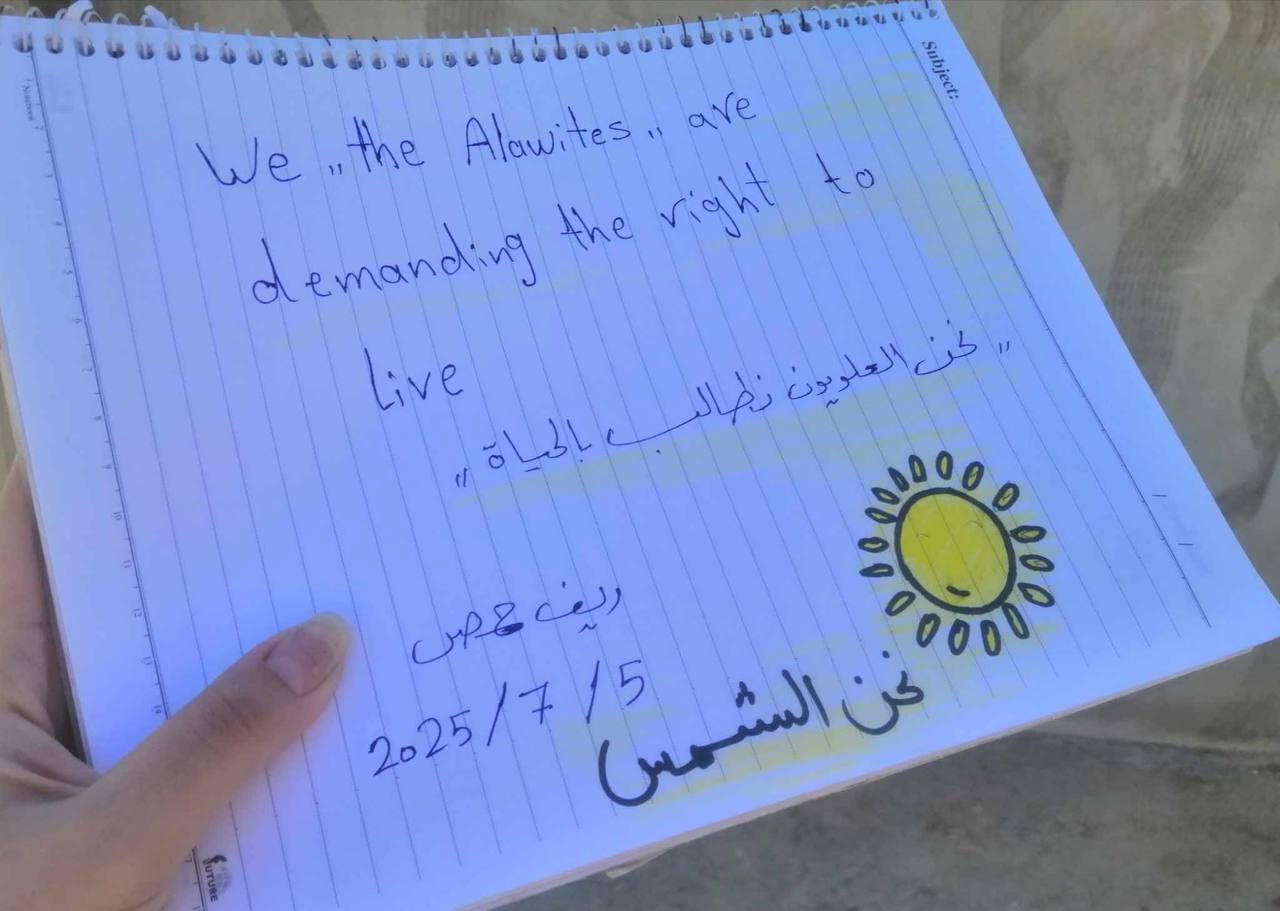 Subject:
We „the Alawites„ are
demanding the right to
live
„ نحن العلويون نطالب بالحياة „
ريف حمص
2025/7/5
نحن الشمس
FUTURE